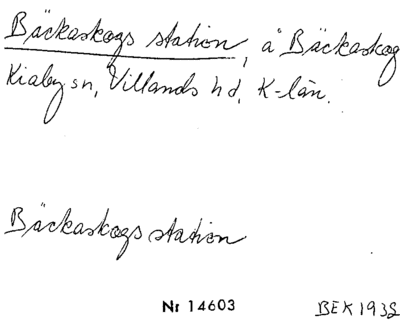 Bäckaskogs station, å Bäckaskog
Kiaby sn, Villands hd, K-län.
Bäckaskogs station
Nr 14603 BEK 1938